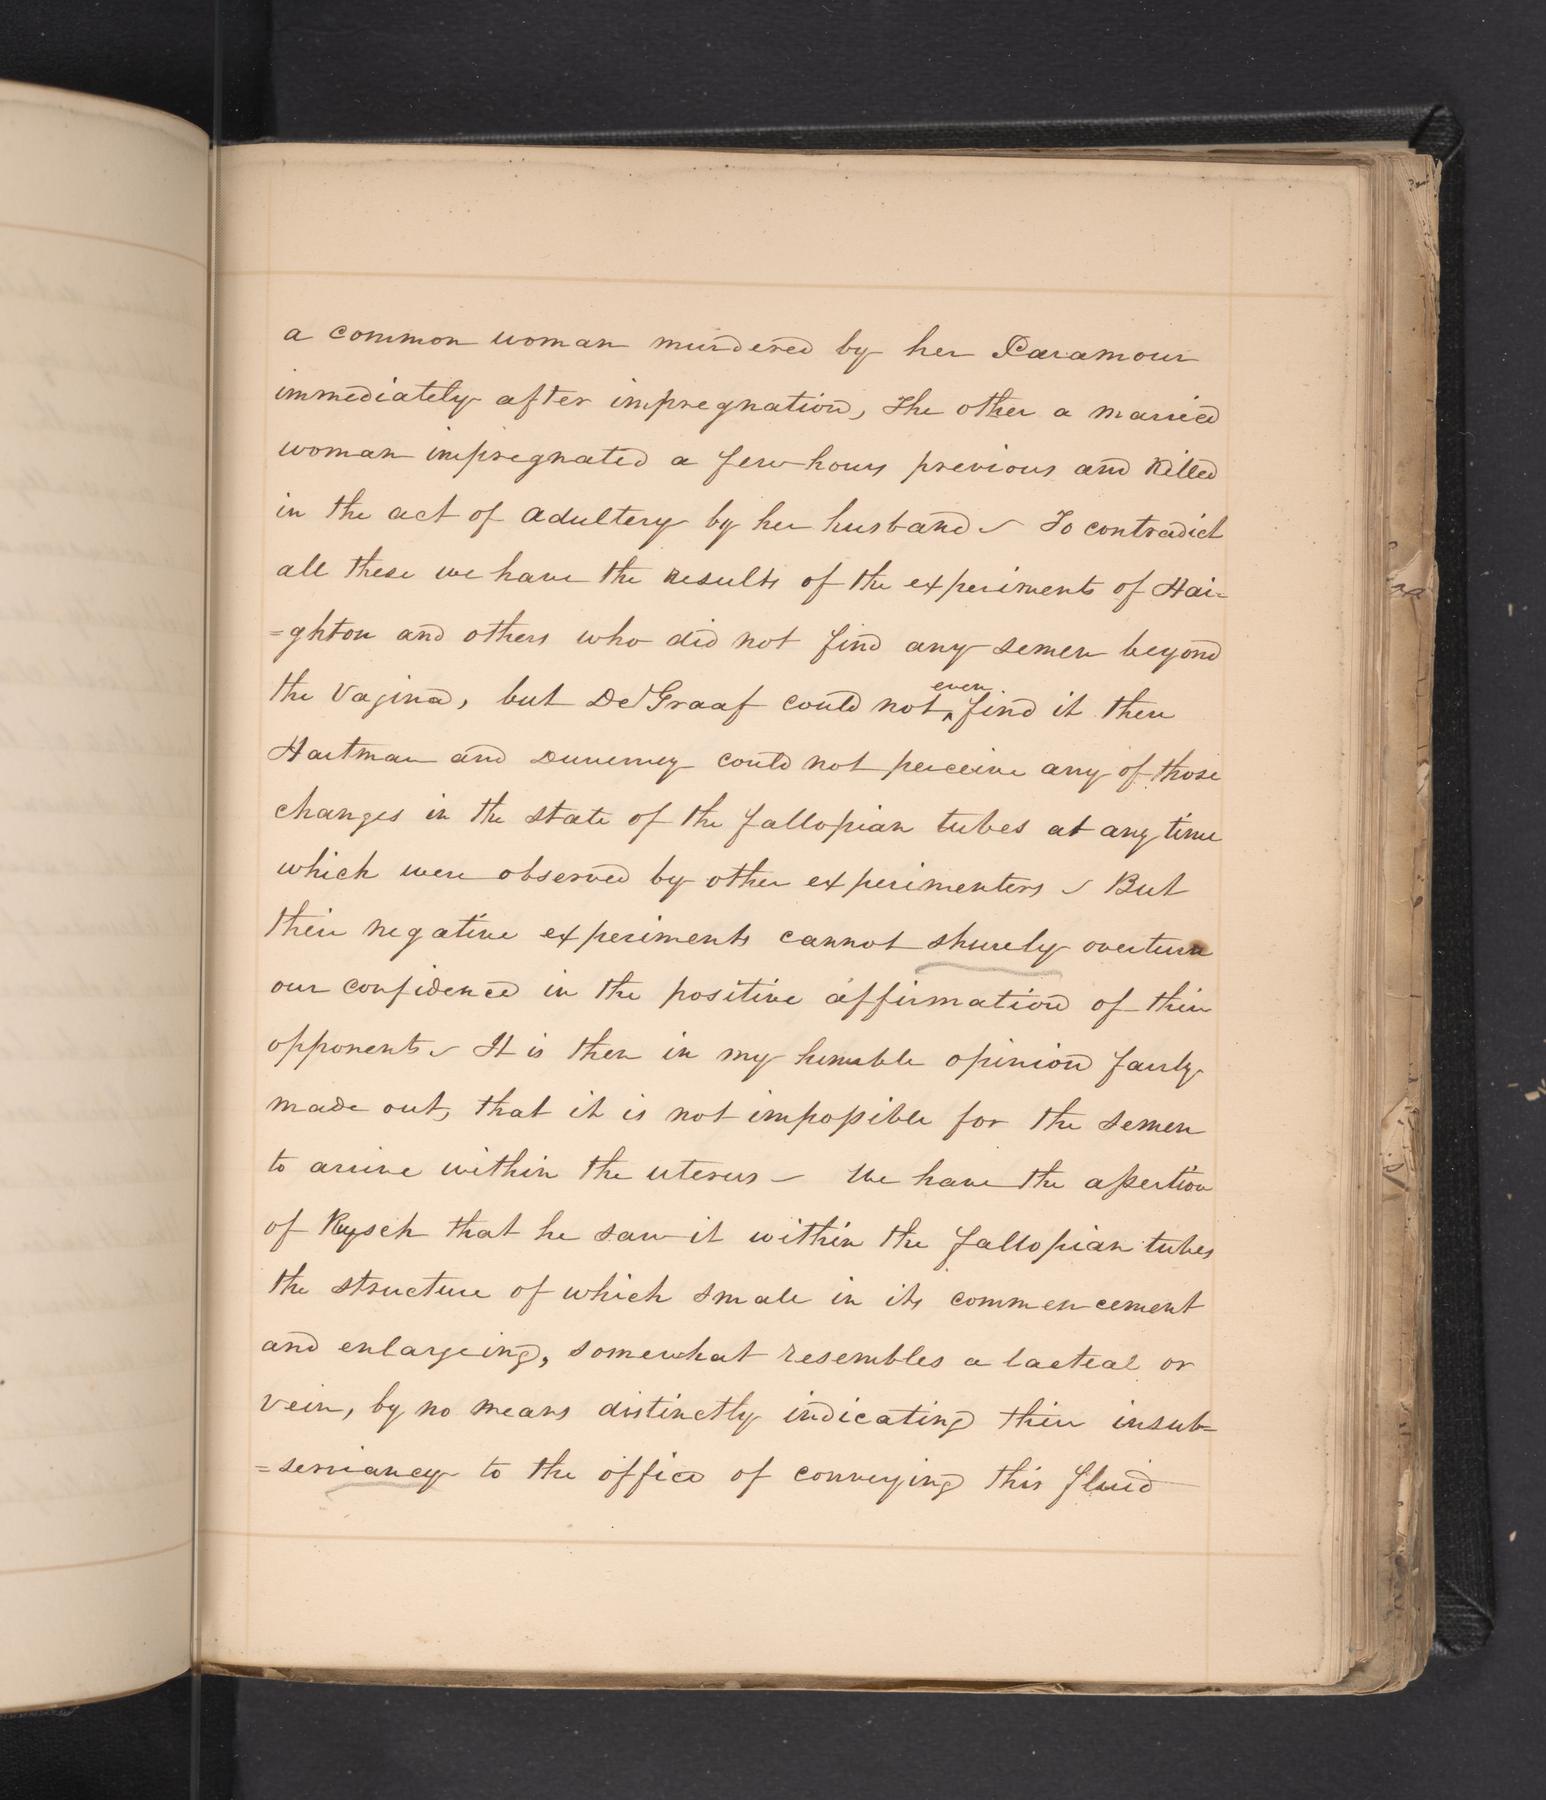 a common woman murdered by her Paramour
immediately after impregnation, The other a married
woman impregnated a few hours previous and killed
in the act of adultery by her husband ~ To contradict
all these we have the results of the experiments of Hai=
=ghton and others who did not find any semen beyond
the Vagina, but De Graaf could not even find it there
Hartman and Duverney could not perceive any of those
changes in the state of the fallopian tubes at any time
which were observed by other experimenters ~ But
their negative experiments cannot shurely overturn
our confidence in the positive affirmation of their
opponents ~ It is then in my humble opinion fairly
made out, that it is not impossible for the semen
to arrive within the uterus ~ We have the assertion
of Ruysch that he saw it within the fallopian tubes
the structure of which small in its commencement
and enlargeing, somewhat resembles a lacteal or
vein, by no means distinctly indicating their insub=
=serviancy to the office of conveying this fluid